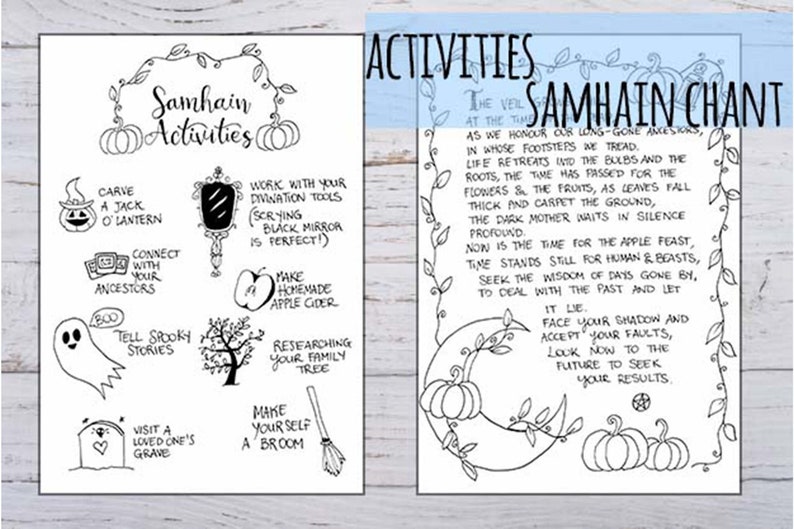 ACTIVITIES
SAMHAIN CHANT
Samhain
Activities
CARVE
A JACK
O' LANTERN
WORK WITH YOUR
DIVINATION TOOLS
(SCRYING
BLACK MIRROR
IS PERFECT!)
CONNECT
WITH
YOUR
ANCESTORS
MAKE
HOMEMADE
APPLE CIDER
BOO
TELL SPOOKY
STORIES
RESEARCHING
YOUR FAMILY
TREE
VISIT A
LOVED ONE'S
GRAVE
MAKE
YOURSELF
A BROOM
THE VEIL
AT THE TIME
AS WE HONOUR OUR LONG-GONE ANCESTORS,
IN WHOSE FOOTSTEPS WE TREAD.
LIFE RETREATS INTO THE BULBS AND THE
ROOTS, THE TIME HAS PASSED FOR THE
FLOWERS & THE FRUITS, AS LEAVES FALL
THICK AND CARPET THE GROUND,
THE DARK MOTHER WAITS IN SILENCE
PROFOUND.
NOW IS THE TIME FOR THE APPLE FEAST,
TIME STANDS STILL FOR HUMAN & BEASTS,
SEEK THE WISDOM OF DAYS GONE BY,
TO DEAL WITH THE PAST AND LET
IT LIE.
FACE YOUR SHADOW AND
ACCEPT YOUR FAULTS,
LOOK NOW TO THE
FUTURE TO SEEK
YOUR RESULTS.